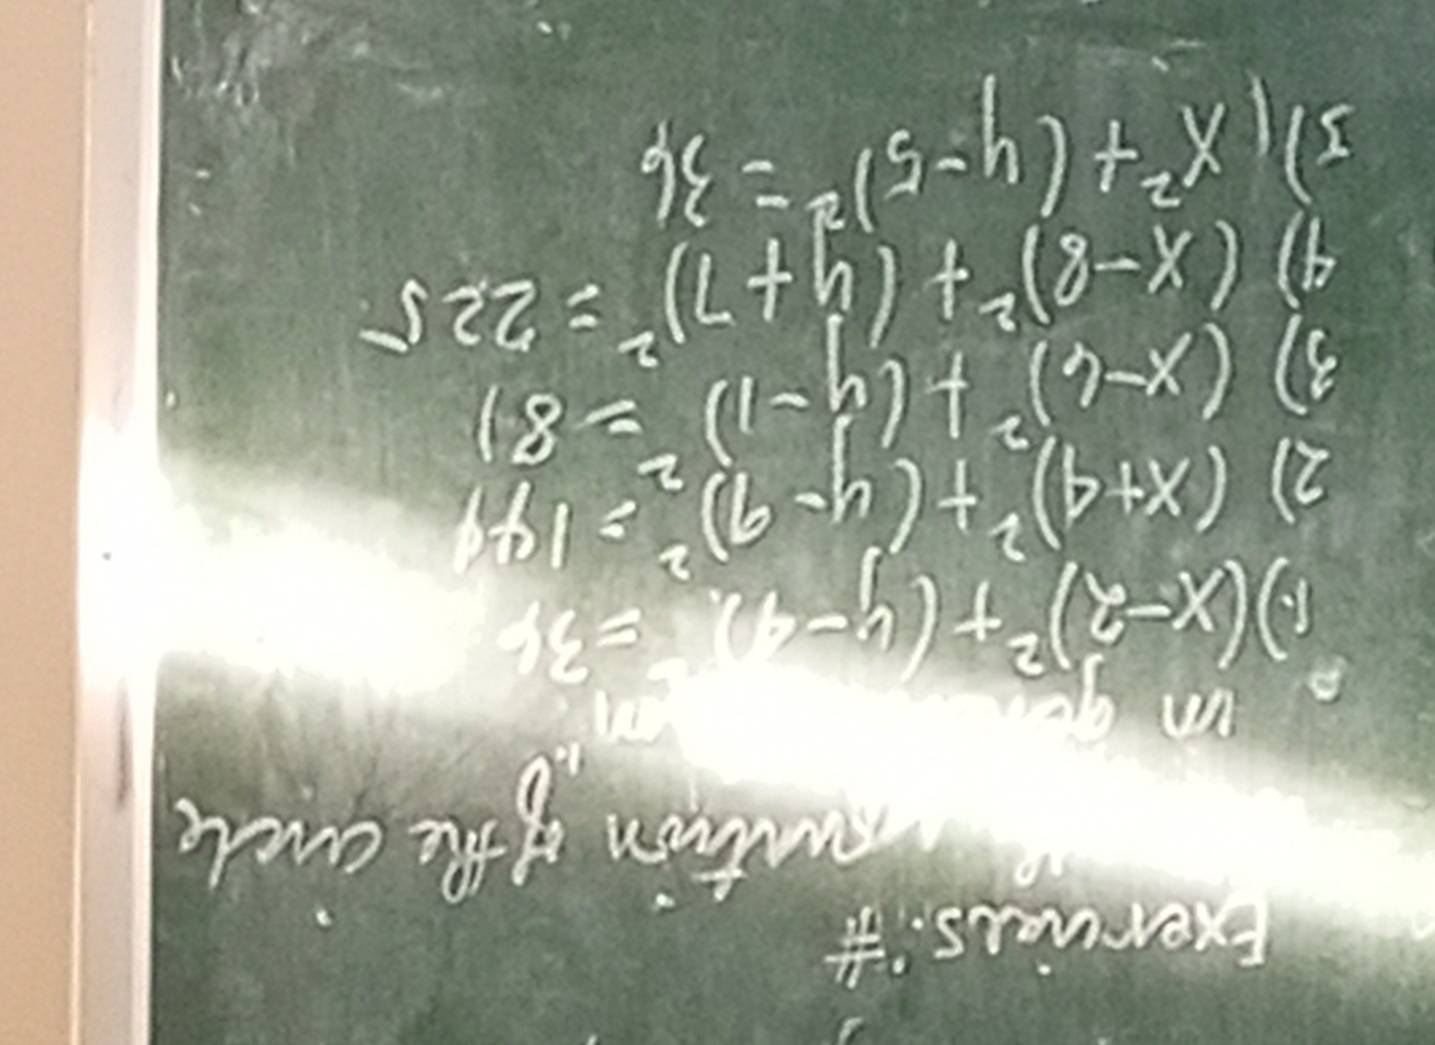 Exercises: #
equation of the circle
in general form.
1.) (x-2)² + (y-4)² = 36
2) (x+4)² + (y-9)² = 144
3) (x-6)² + (y-1)² = 81
4) (x-8)² + (y+7)² = 225
5) x² + (y-5)² = 36